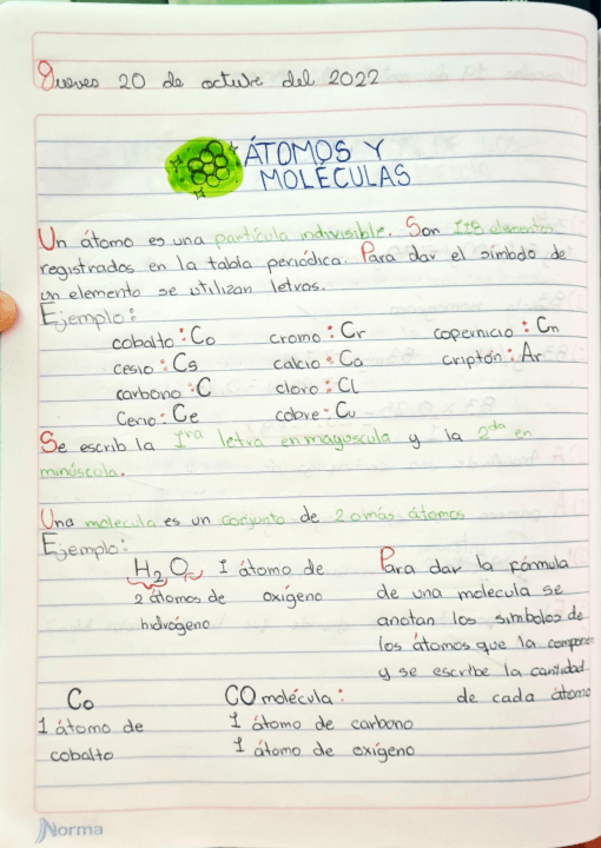 Jueves 20 de octubre del 2022
ÁTOMOS Y
MOLÉCULAS
Un átomo es una partícula indivisible. Son 118 elementos
registrados en la tabla periódica. Para dar el símbolo de
un elemento se utilizan letras.
Ejemplo:
cobalto: Co cromo: Cr copernicio: Cn
cesio: Cs calcio: Ca criptón: Ar
carbono: C cloro: Cl
Cerio: Ce cobre: Cu
Se escrib la 1ra letra en mayoscula y la 2da en
minúscula.
Una molecula es un conjunto de 2 o más átomos
Ejemplo:
H2O 1 átomo de Para dar la fórmula
2 átomos de oxígeno de una molecula se
hidrógeno anotan los símbolos de
los átomos que la componen
y se escribe la cantidad
Co CO molécula: de cada átomo
1 átomo de 1 átomo de carbono
cobalto 1 átomo de oxígeno
Norma